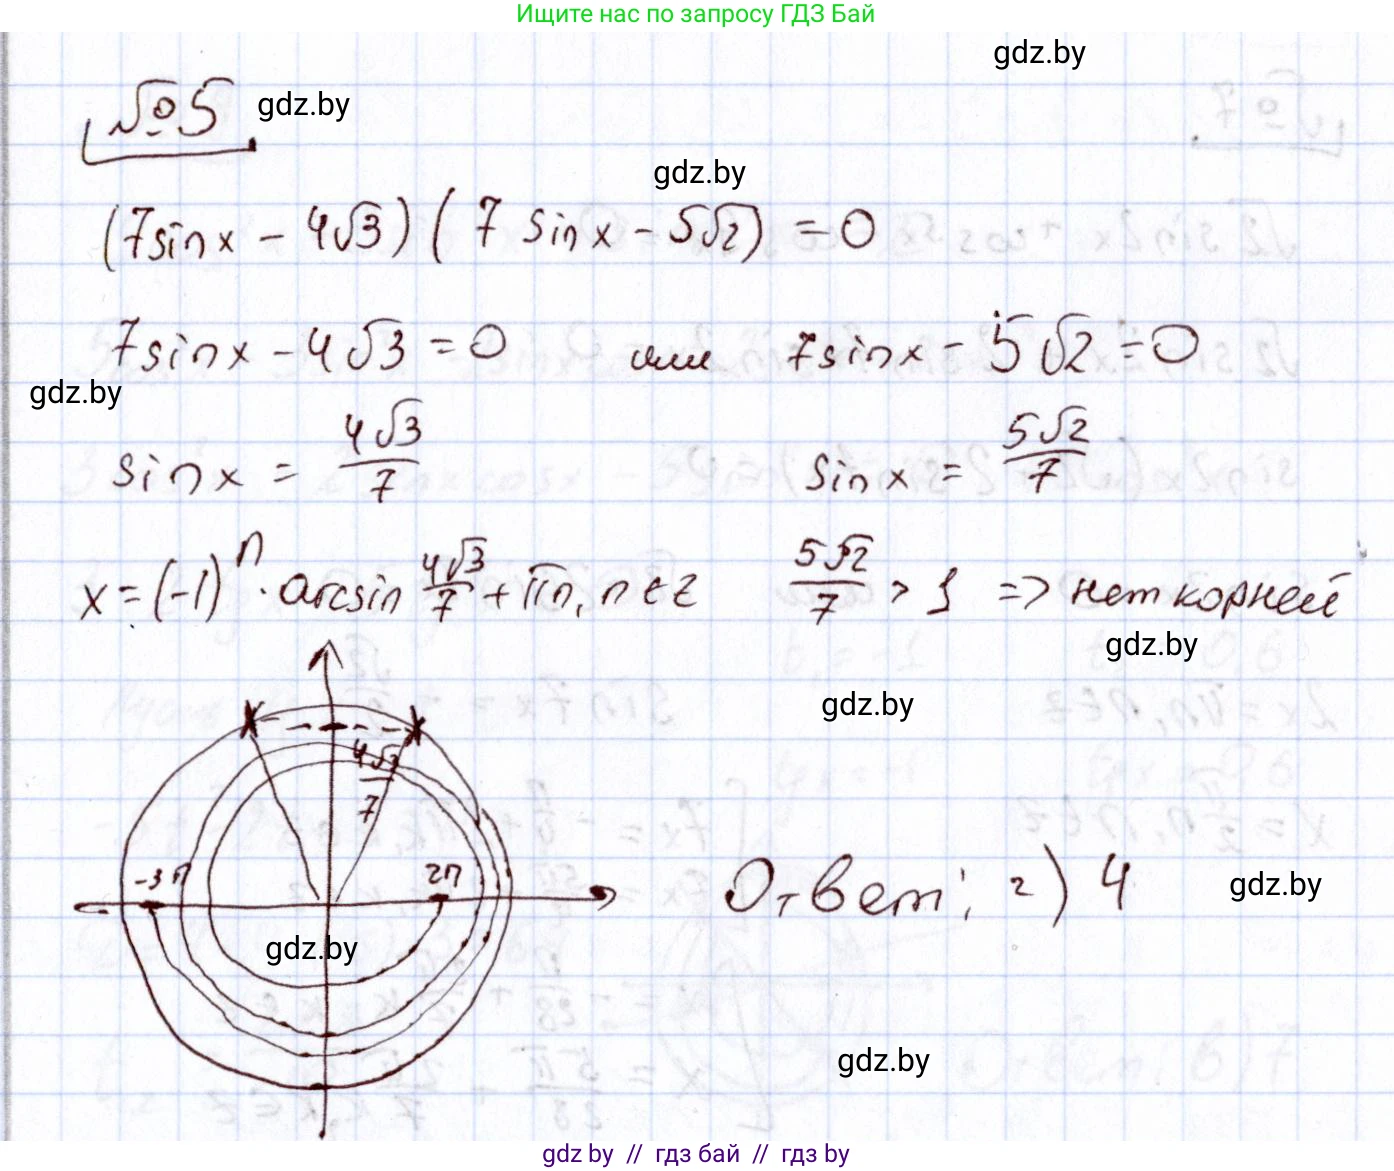 Ищите нас по запросу ГДЗ Бай
gdz.by
№5 gdz.by
gdz.by
(7sinx - 4√3)(7sinx - 5√2) = 0
7sinx - 4√3 = 0 или 7sinx - 5√2 = 0
gdz.by
sinx = 4√3/7 sinx = 5√2/7
x = (-1)^n · arcsin 4√3/7 + πn, n ∈ Z 5√2/7 > 1 => нет корней
gdz.by
gdz.by
4√3/7
-3π 2π
Ответ: г) 4 gdz.by
gdz.by
gdz.by
gdz by // гдз бай // гдз by